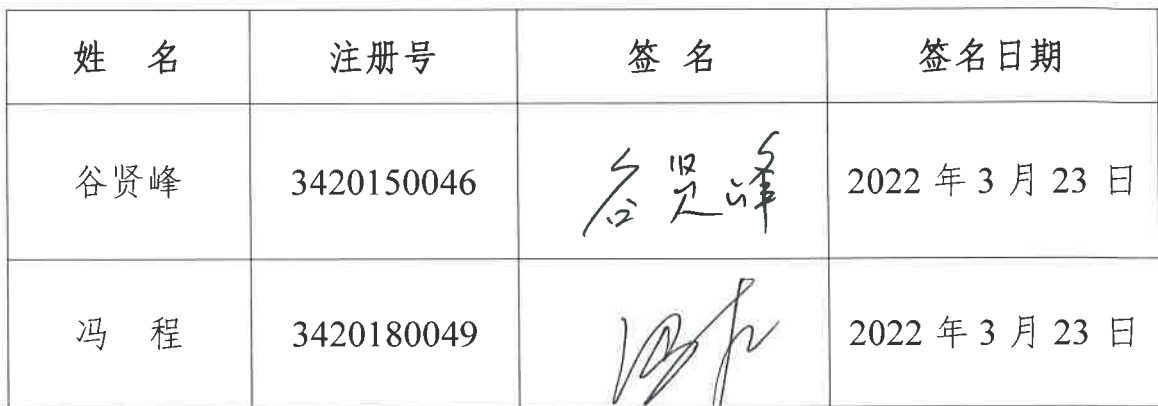 姓 名 注册号 签 名 签名日期
谷贤峰 3420150046 谷贤峰 2022 年 3 月 23 日
冯 程 3420180049 2022 年 3 月 23 日